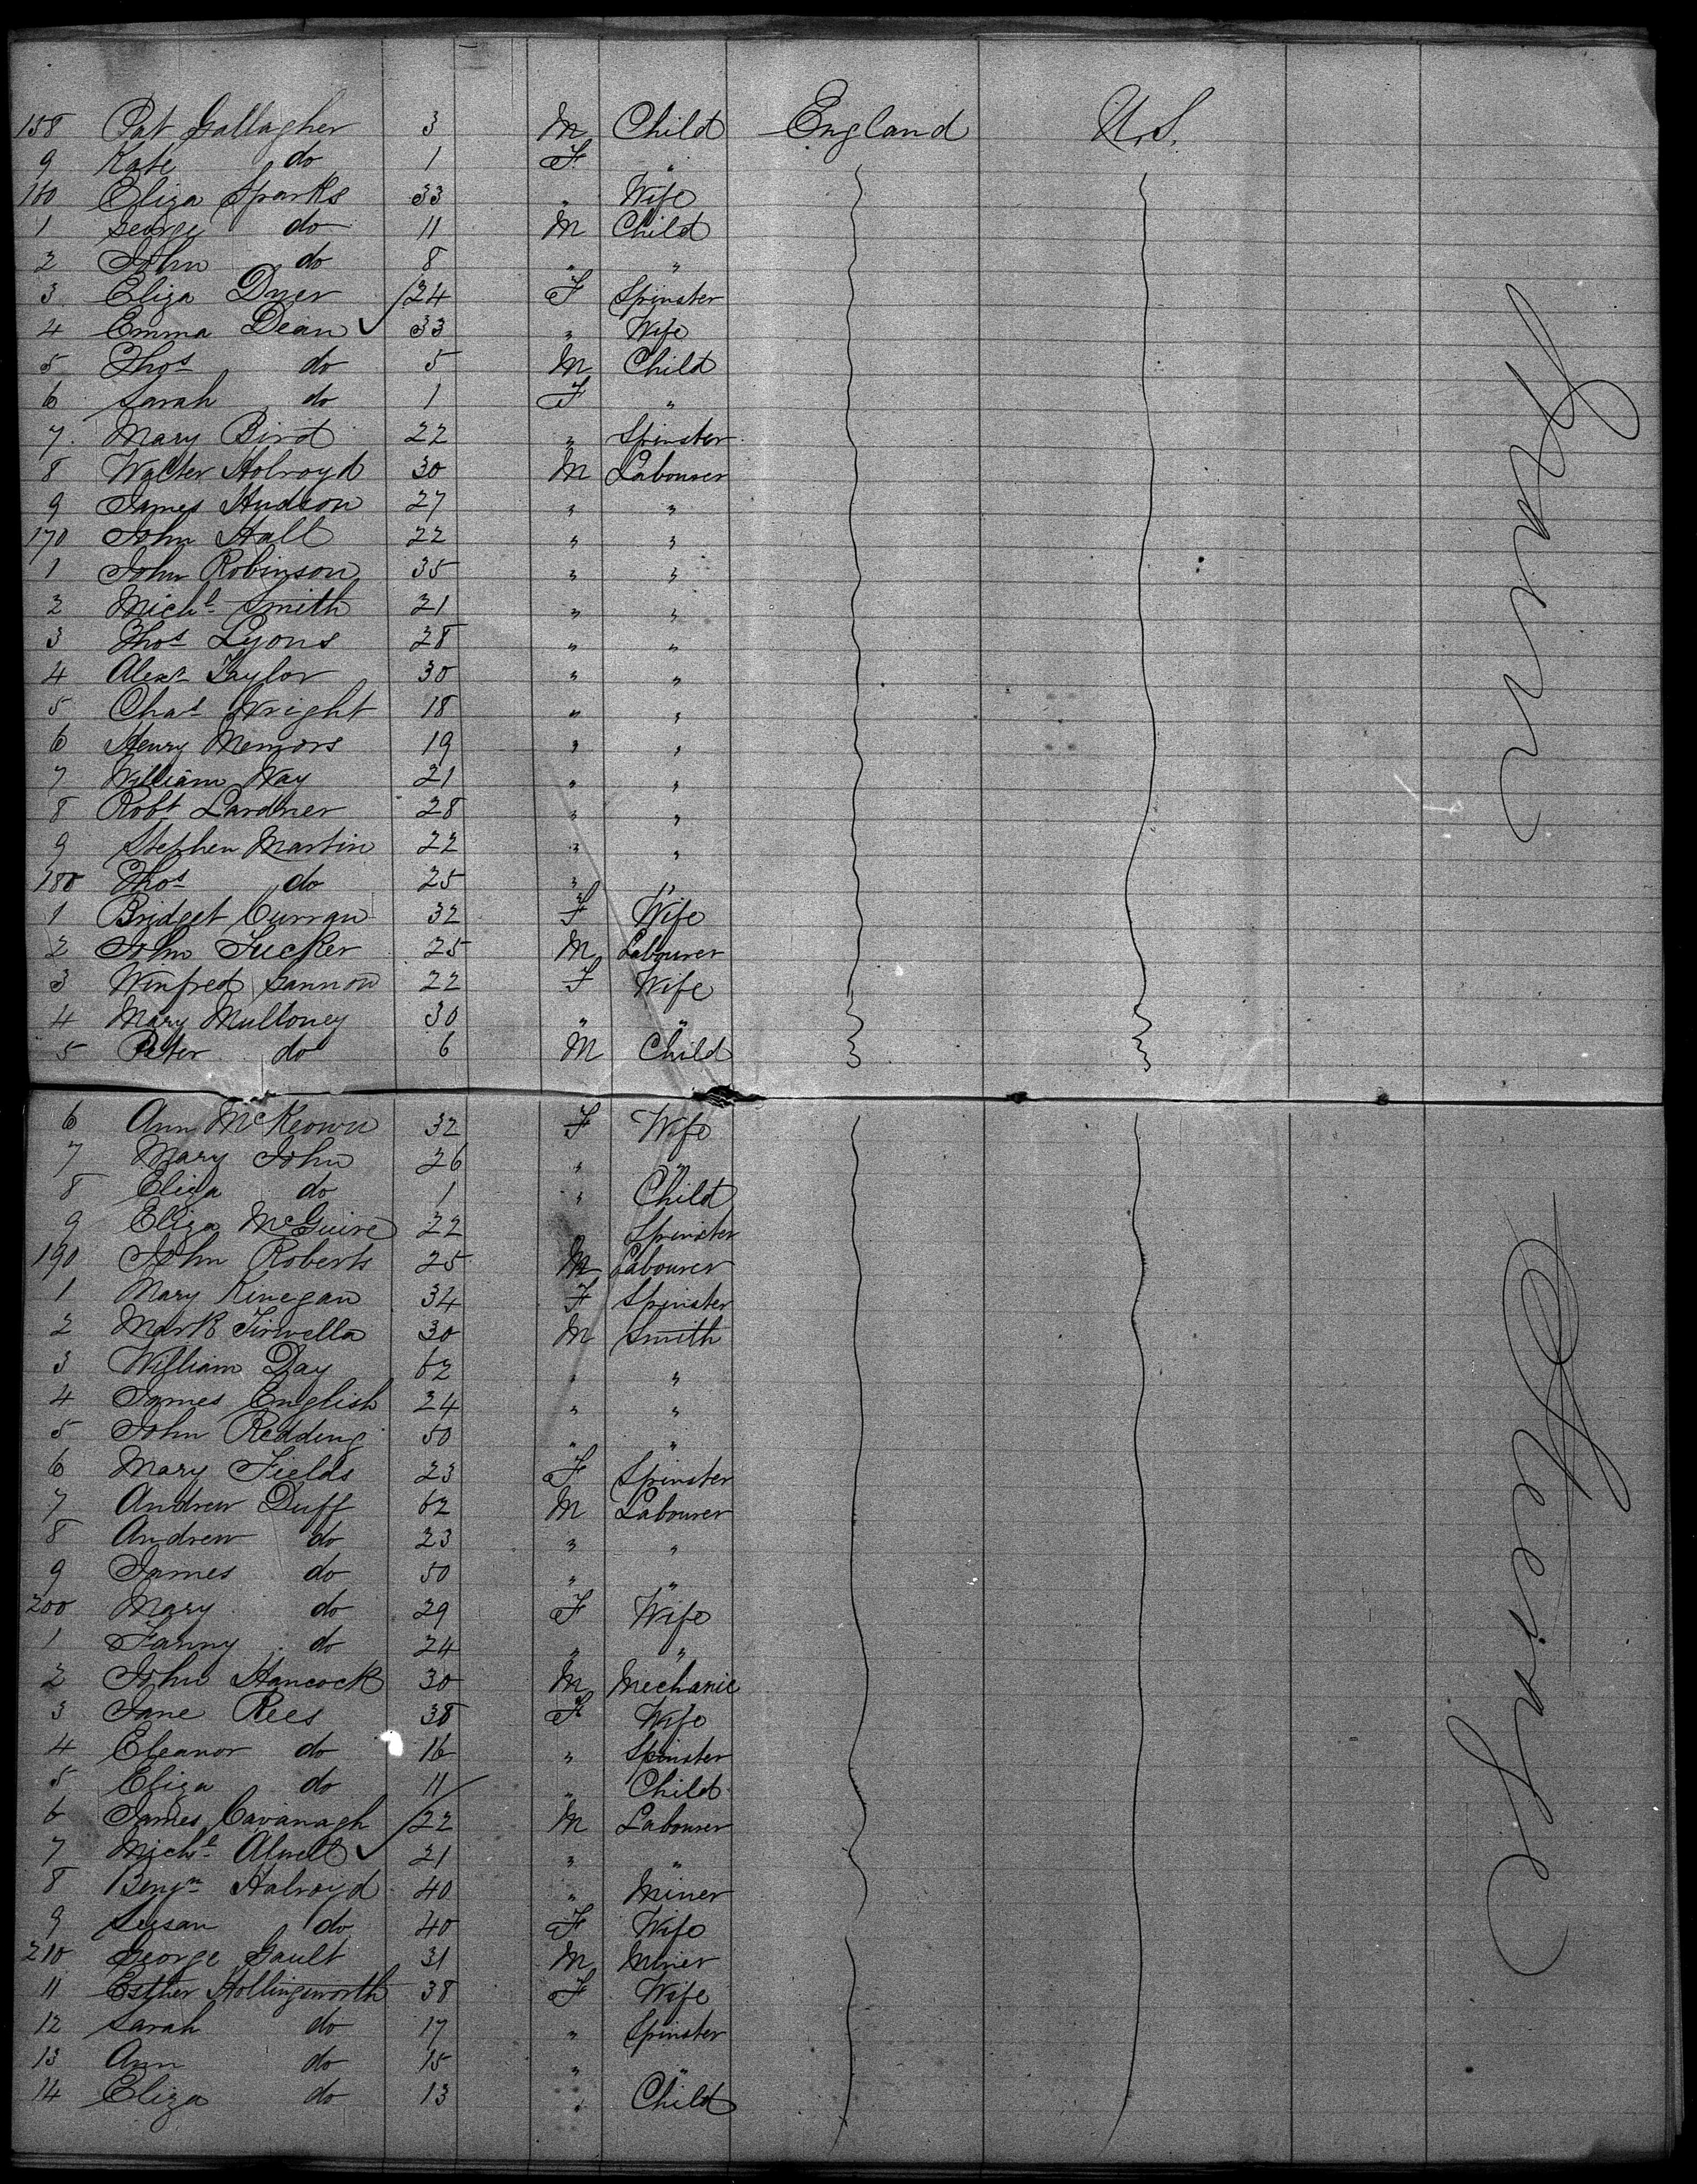 158 Pat Gallagher 3 M Child England U.S.
9 Kate do 1 F "
160 Eliza Sparks 33 " Wife
1 George do 11 M Child
2 John do 8 " "
3 Eliza Dyer 24 F Spinster
4 Emma Dean 33 " Wife
5 Thos do 5 M Child
6 Sarah do 1 F "
7 Mary Bird 22 " Spinster
8 Walter Holroyd 30 M Labourer
9 James Hudson 27 " "
170 John Hall 22 " "
1 John Robinson 35 " "
2 Michl Smith 21 " "
3 Thos Lyons 28 " "
4 Alexr Taylor 30 " "
5 Chas Wright 18 " "
6 Henry Memors 19 " "
7 William Way 21 " "
8 Robt Lardner 28 " "
9 Stephen Martin 22 " "
180 Thos do 25 " "
1 Bridget Curran 32 F Wife
2 John Tucker 25 M Labourer
3 Winfred Gannon 22 F Wife
4 Mary Mulloney 30 " "
5 Peter do 6 M Child
6 Ann McKeown 32 F Wife
7 Mary John 26 " "
8 Eliza do 1 " Child
9 Eliza McGuire 22 Spinster
190 John Roberts 25 M Labourer
1 Mary Kinegan 34 F Spinster
2 Mark Tirwella 30 M Smith
3 William Day 62 " "
4 James English 24 " "
5 John Redding 50 " "
6 Mary Fields 23 F Spinster
7 Andrew Duff 62 M Labourer
8 Andrew do 23 " "
9 James do 50 " "
200 Mary do 29 F Wife
1 Fanny do 24 " "
2 John Hancock 30 M Mechanic
3 Jane Rees 38 F Wife
4 Eleanor do 16 " Spinster
5 Eliza do 11 " Child
6 James Cavanagh 22 M Labourer
7 Michl Alwell 21 " "
8 Benjn Halroyd 40 " Miner
9 Susan do 40 F Wife
210 George Gault 31 M Miner
11 Esther Hollingsworth 38 F Wife
12 Sarah do 17 " Spinster
13 Ann do 15 " "
14 Eliza do 13 " Child